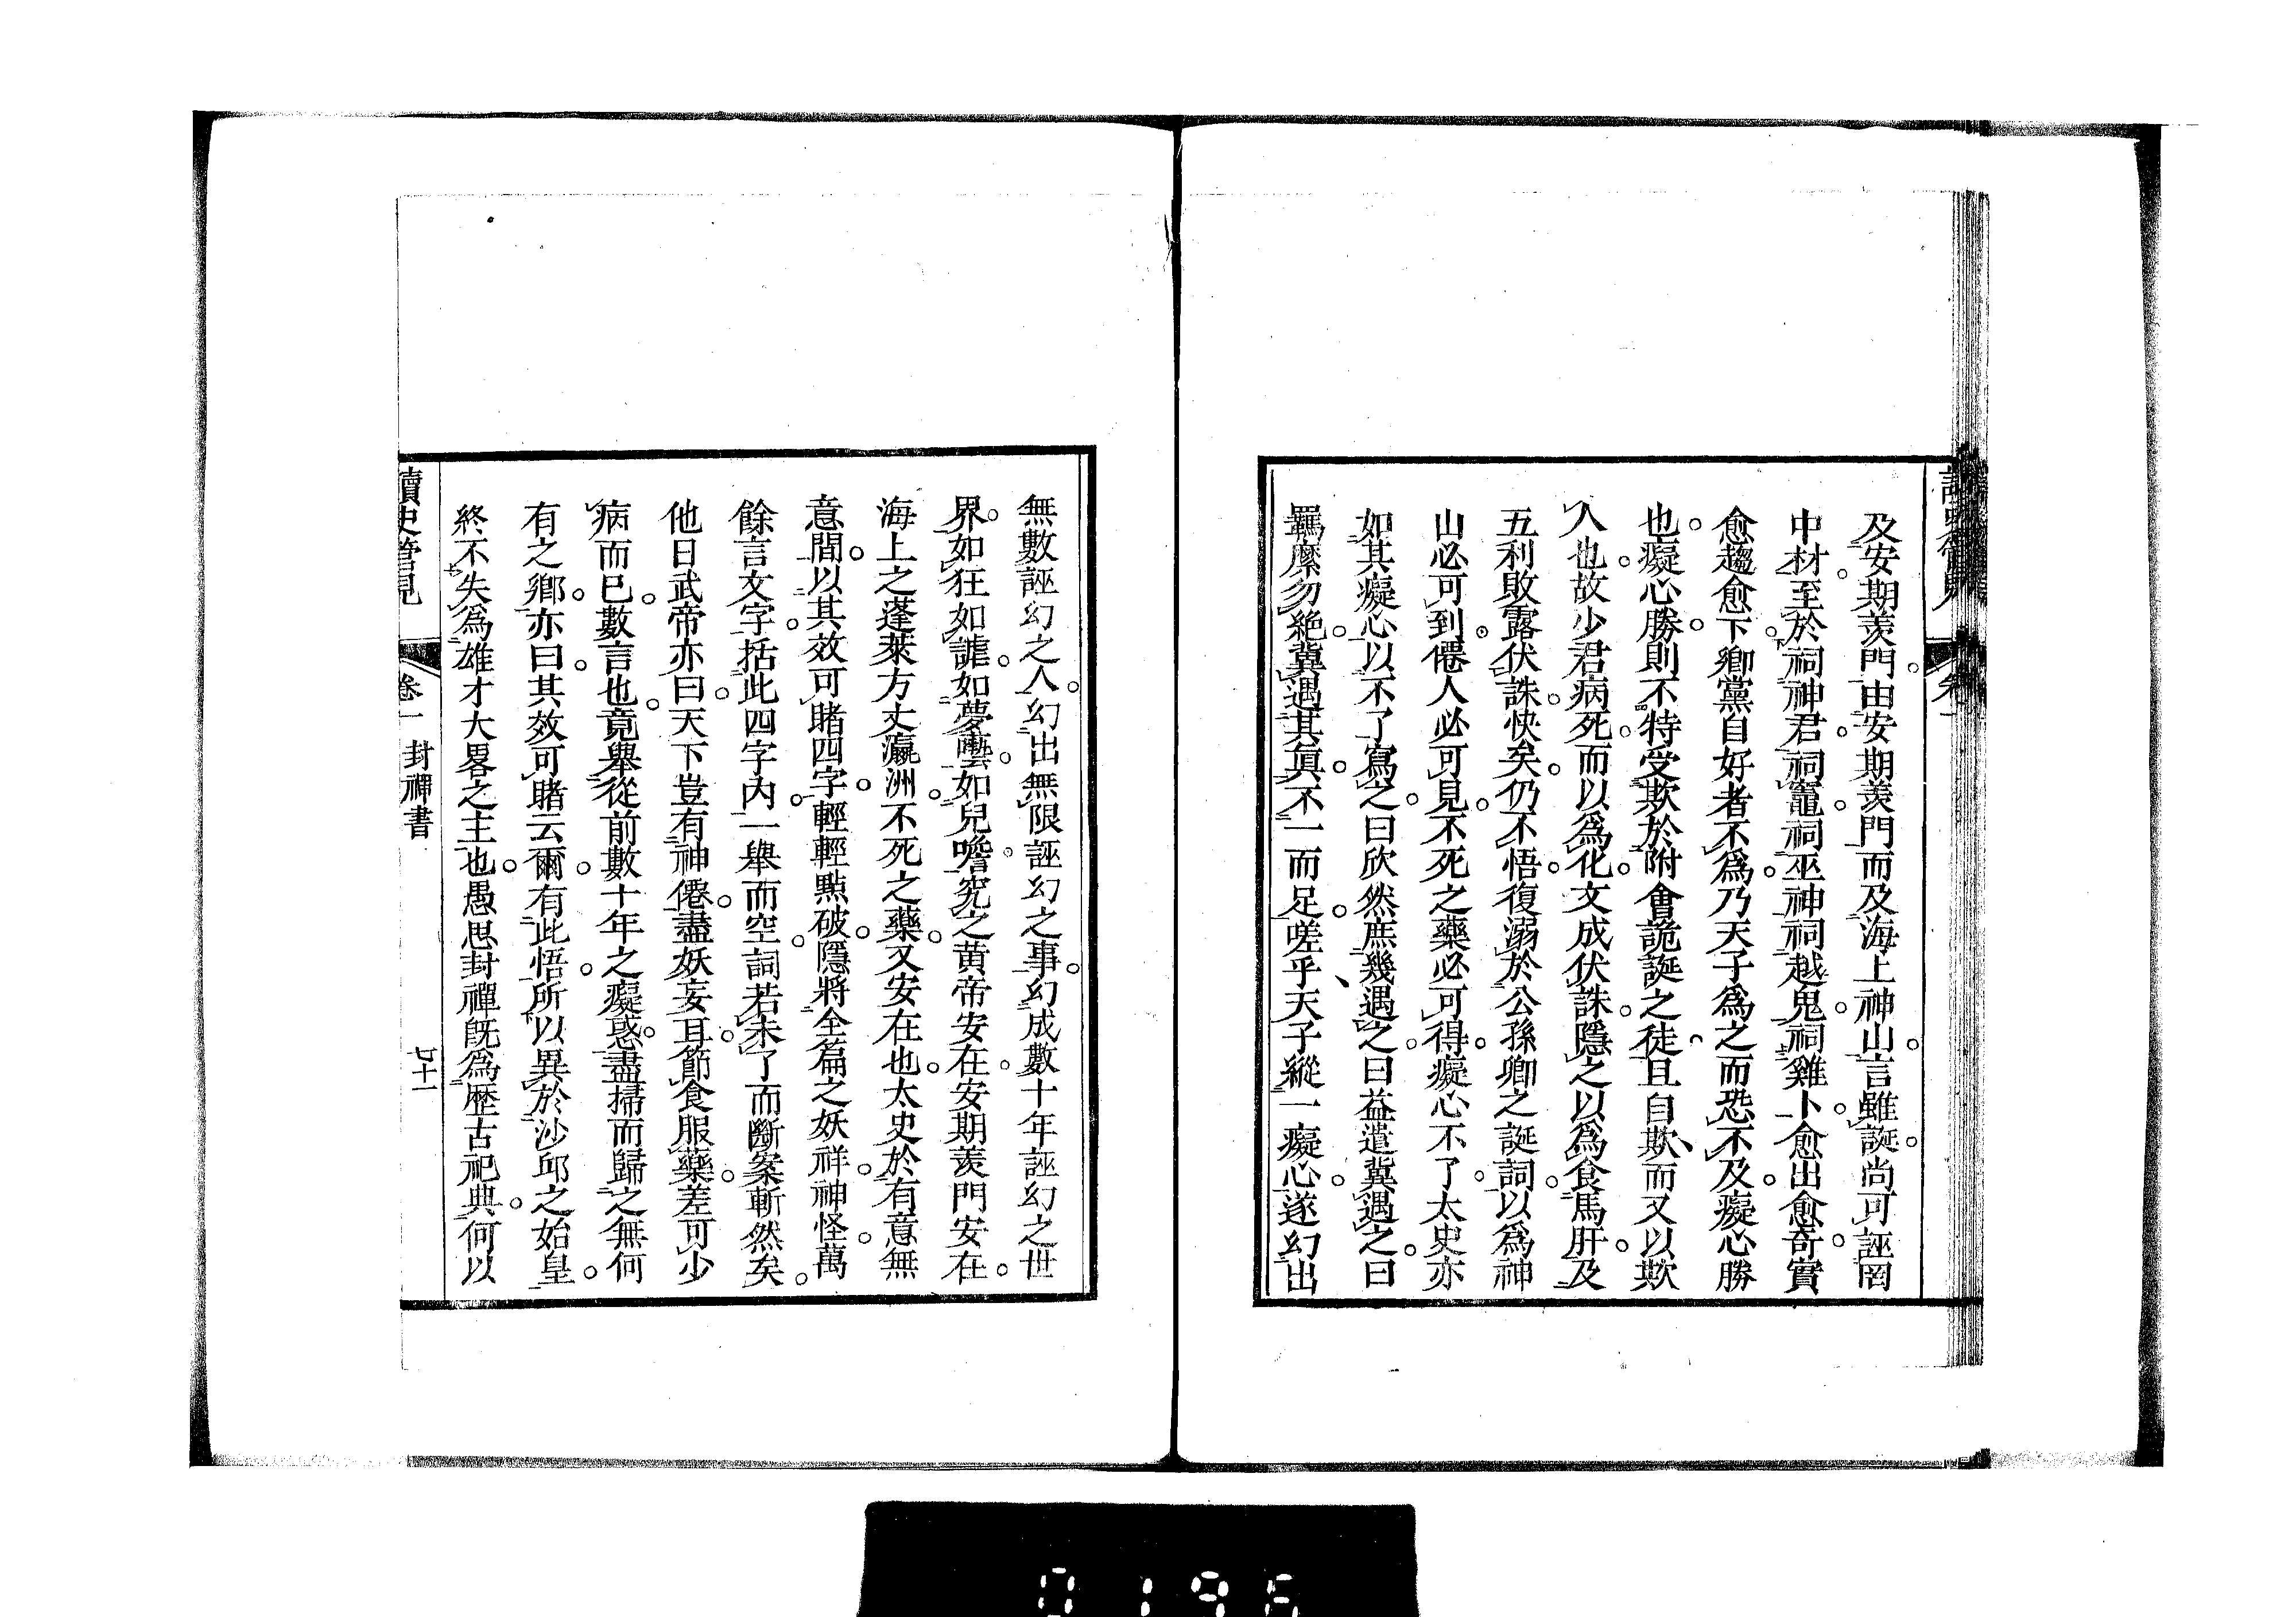 及安期羨門。由安期羨門而及海上神山。言雖誕。尚可誣罔
中材。至於祠神君。祠竈。祠巫神。祠越鬼。祠雞卜。愈出愈奇。實
愈趨愈下。鄉黨自好者不爲。乃天子爲之而恐不及。癡心勝
也。癡心勝。則不特受欺於附會詭誕之徒。且自欺、而又以欺
人也。故少君病死。而以爲化。文成伏誅。隱之以爲食馬肝。及
五利敗露伏誅。快矣。仍不悟。復溺於公孫卿之誕詞。以爲神
山必可到。僊人必可見。不死之藥必可得。癡心不了。太史亦
如其癡心以不了寫之。曰欣然庶幾遇之。曰益遣冀遇之。曰
羈縻勿絶。冀遇其眞。不一而足。嗟乎、天子縱一癡心。遂幻出
無數誣幻之人。幻出無限誣幻之事。幻成數十年誣幻之世
界。如狂如謔。如夢囈。如兒噡。究之黄帝安在。安期羨門安在。
海上之蓬萊方丈瀛洲。不死之藥。又安在也。太史於有意無
意間。以其效可賭四字。輕輕點破。隱將全篇之妖祥。神怪。萬
餘言文字。括此四字内。一舉而空。詞若未了而斷案斬然矣。
他日武帝亦曰。天下豈有神僊。盡妖妄耳。節食服藥。差可少
病而已。數言也。竟舉從前數十年之癡惑。盡掃而歸之無何
有之鄉。亦曰。其效可賭云爾。有此悟。所以異於沙邱之始皇。
終不失爲雄才大畧之主也。愚思封禪旣爲歴古祀典。何以
讀史管見
卷一 封禪書
七十一
0196